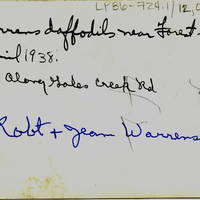 LP86-724.1/12,0
rrens daffodils near Forest
ril 1938.
Along Gales Creek Rd
Robt + Jean Warrens